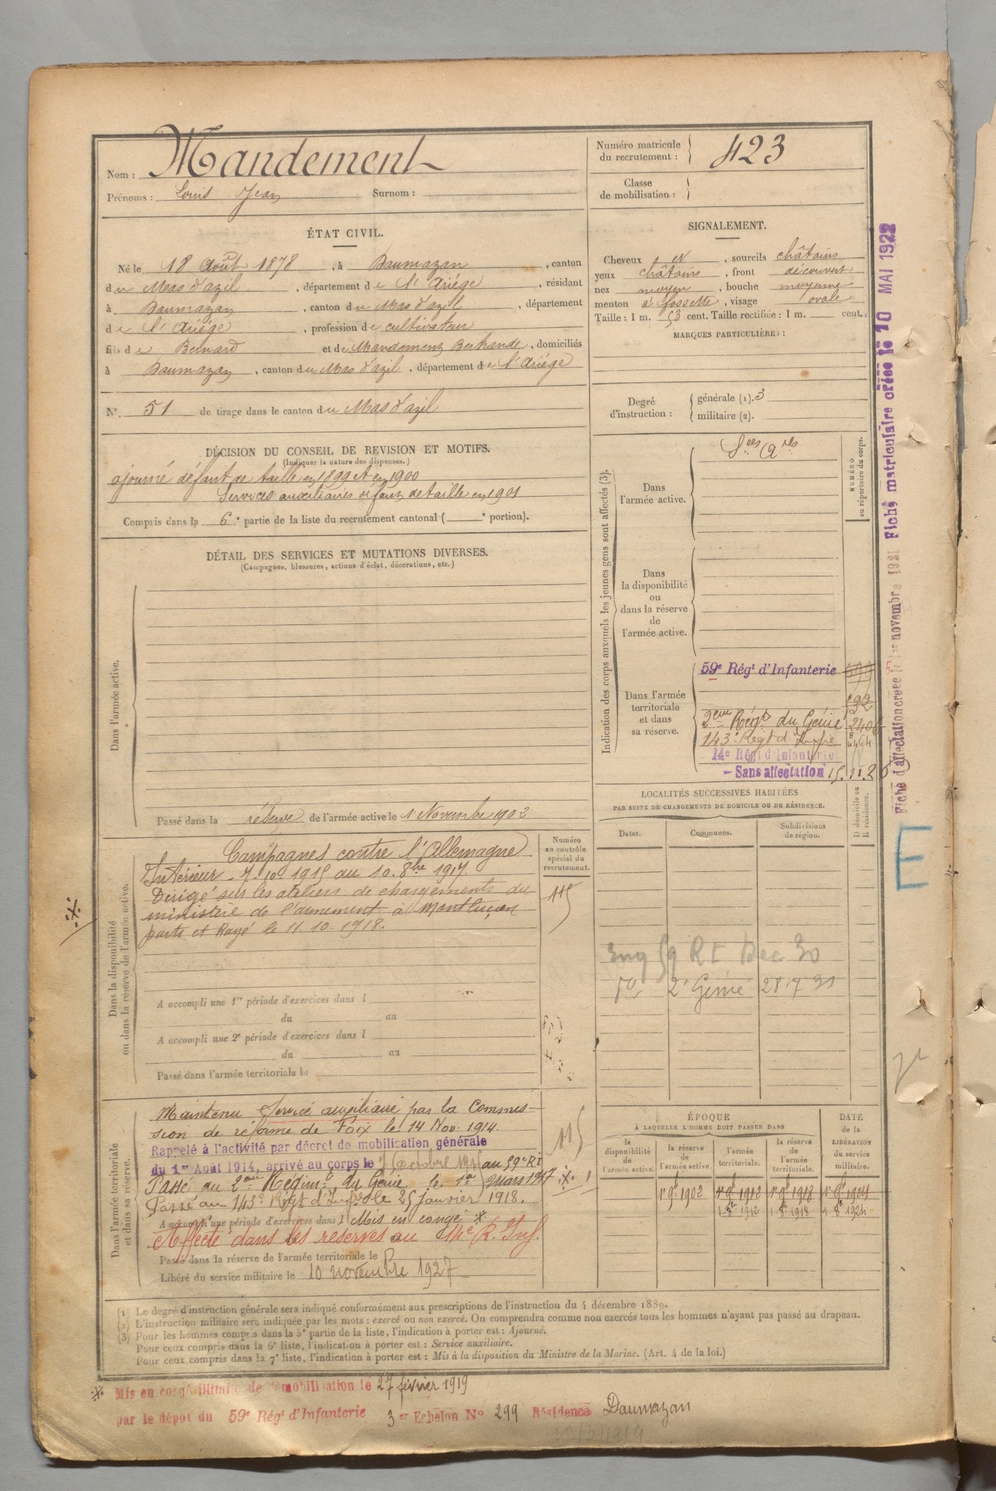 Nom : Mandement
Prénoms : Louis Jean Surnom :
Numéro matricule du recrutement : 423
Classe de mobilisation :
ÉTAT CIVIL.
Né le 18 Août 1878, à Daumazan, canton
du Mas d'azil, département de l'Ariège, résidant
à Daumazan, canton du Mas d'azil, département
de l'Ariège, profession de cultivateur
fils de Bernard et de Mandement Bertrande, domiciliés
à Daumazan, canton du Mas d'azil, département de l'Ariège
N° 51 de tirage dans le canton du Mas d'azil
SIGNALEMENT.
Cheveux et sourcils châtains
yeux châtains, front découvert
nez moyen, bouche moyenne
menton à fossette, visage ovale
Taille : 1 m. 53 cent. Taille rectifiée : 1 m. cent.
MARQUES PARTICULIÈRES :
Degré d'instruction : générale (1). 3
militaire (2).
DÉCISION DU CONSEIL DE REVISION ET MOTIFS.
(Indiquer la nature des dispenses.)
ajourné défaut de taille en 1899 et en 1900
Services auxiliaires défaut de taille en 1901
Compris dans la 6e partie de la liste du recrutement cantonal ( e portion).
DÉTAIL DES SERVICES ET MUTATIONS DIVERSES.
(Campagnes, blessures, actions d'éclat, décorations, etc.)
Dans l'armée active.
Passé dans la réserve de l'armée active le 1 Novembre 1902
Indication des corps auxquels les jeunes gens sont affectés (3).
NUMÉRO au répertoire du corps.
Dans l'armée active.
Sces Qres
Dans la disponibilité ou dans la réserve de l'armée active.
Dans l'armée territoriale et dans sa réserve.
59e Régt d'Infanterie
2eme Régt du Génie
143e Régt d'Infie
14e Régt d'Infanterie
- Sans affectation
LOCALITÉS SUCCESSIVES HABITÉES
PAR SUITE DE CHANGEMENTS DE DOMICILE OU DE RÉSIDENCE.
Dates. Communes. Subdivisions de région. D domicile ou R résidence.
59 RI Dec 30
2e Génie
Dans la disponibilité ou dans la réserve de l'armée active.
Numéro au contrôle spécial du recrutement.
115
Campagnes contre l'Allemagne
Intérieur 7. 10 1915 au 10. 8bre 1917
Dirigé sur les ateliers de chargements du
ministère de l'armement à Montluçon
parti et Rayé le 11. 10. 1918.
A accompli une 1re période d'exercices dans l
du au
A accompli une 2e période d'exercices dans l
du au
Passé dans l'armée territoriale le
Dans l'armée territoriale et dans sa réserve.
Maintenu service auxiliaire par la Commis-
sion de réforme de Foix le 14 Nov. 1914.
Rappelé à l'activité par décret de mobilisation générale
du 1er Août 1914, arrivé au corps le 7 Octobre 1915 au 59e RI
Passé au 2eme Régimt du Génie le 1er Mars 1917
Passé au 143e Régt d'Infie le 25 Janvier 1918.
A accompli une période d'exercices dans l Mis en congé *
Affecté dans les réserves au 14e R. Inf.
Passé dans la réserve de l'armée territoriale le
Libéré du service militaire le 10 novembre 1927
115
ÉPOQUE
À LAQUELLE L'HOMME DOIT PASSER DANS
la disponibilité de l'armée active. la réserve de l'armée active. l'armée territoriale. la réserve de l'armée territoriale.
DATE de la LIBÉRATION du service militaire.
(1) Le degré d'instruction générale sera indiqué conformément aux prescriptions de l'instruction du 4 décembre 1889.
(2) L'instruction militaire sera indiquée par les mots : exercé ou non exercé. On comprendra comme non exercés tous les hommes n'ayant pas passé au drapeau.
(3) Pour les hommes compris dans la 5e partie de la liste, l'indication à porter est : Ajourné.
Pour ceux compris dans la 6e liste, l'indication à porter est : Service auxiliaire.
Pour ceux compris dans la 7e liste, l'indication à porter est : Mis à la disposition du Ministre de la Marine. (Art. 4 de la loi.)
* Mis en congé illimité de démobilisation le 27 février 1919
par le dépôt du 59e Régt d'Infanterie 3er Echelon No 299 Résidence Daumazan
Fiche matriculaire créée le 10 MAI 1922
Fiche d'affectation créée le 1er novembre 1921
E